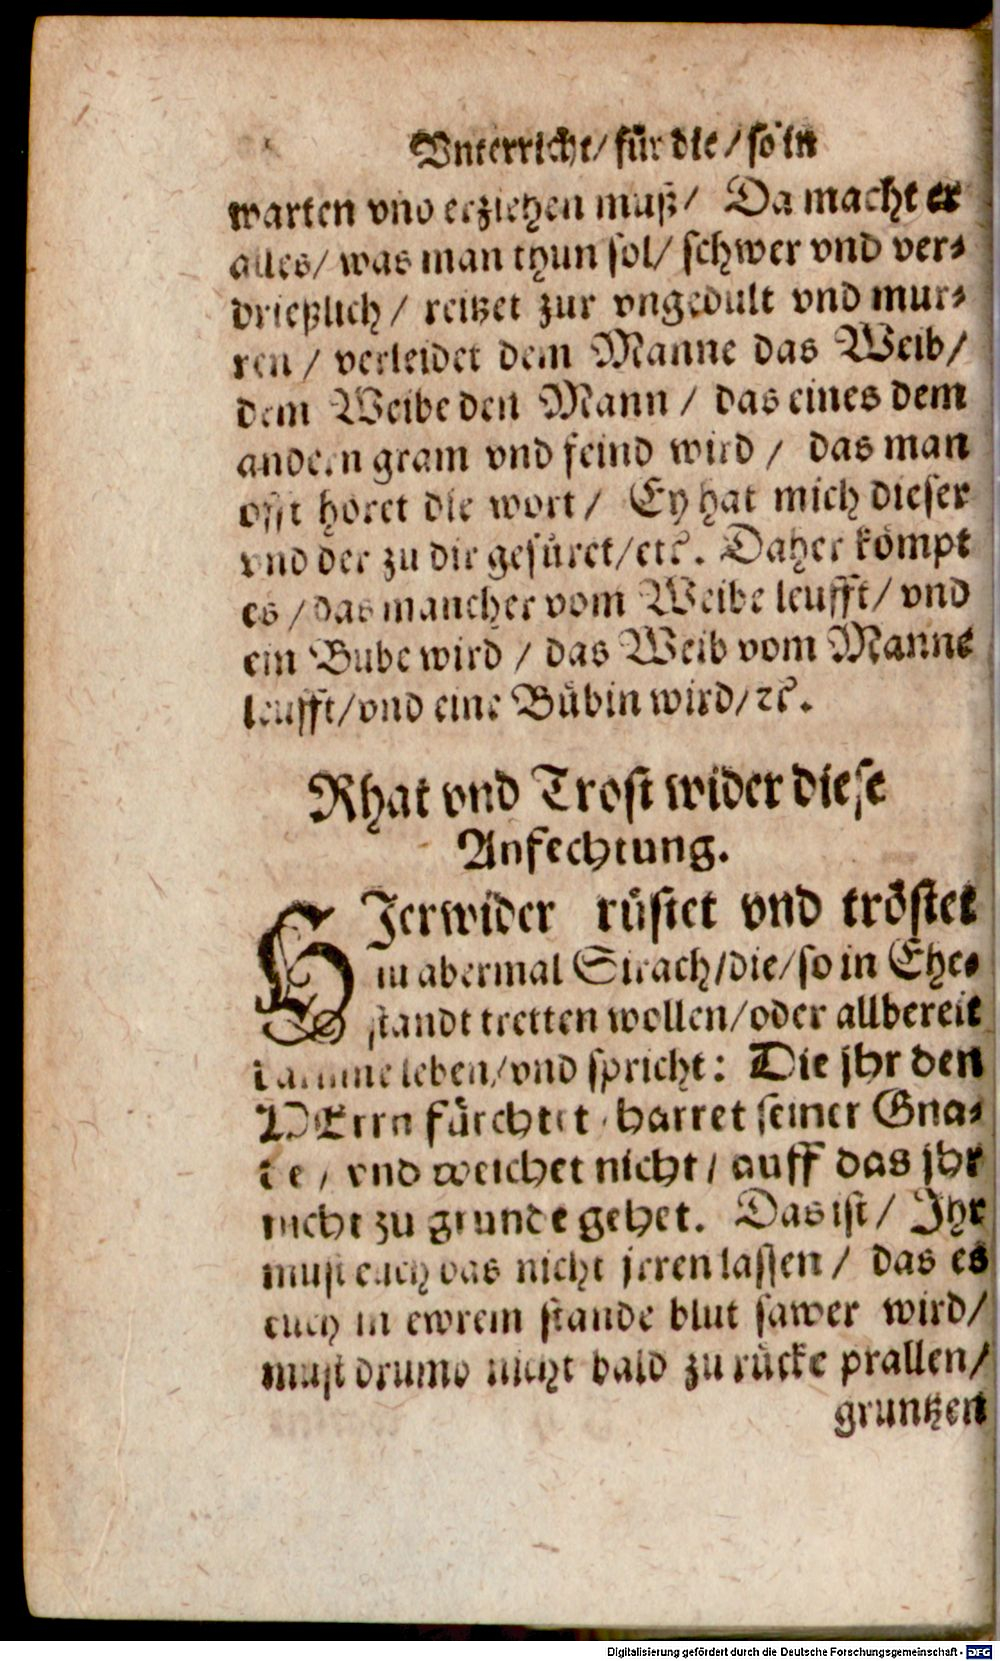 Vnterricht/ für die/ so in
warten vnd erziehen muß/ Da macht er
alles/ was man thun sol/ schwer vnd ver⸗
drießlich/ reitzet zur vngedult vnd mur⸗
ren/ verleidet dem Manne das Weib/
dem Weibe den Mann/ das eines dem
andern gram vnd feind wird/ das man
offt höret die wort/ Ey hat mich dieser
vnd der zu dir gefüret/ etc. Daher kömpt
es/ das mancher vom Weibe leufft/ vnd
ein Bube wird/ das Weib vom Manne
leufft/ vnd eine Bübin wird/ ꝛc.
Rhat vnd Trost wider diese
Anfechtung.
HIerwider rüstet vnd tröstet
nu abermal Sirach/ die/ so in Ehe⸗
standt tretten wollen/ oder allbereit
darinne leben/ vnd spricht: Die jhr den
HErrn fürchtet harret seiner Gna⸗
de/ vnd weichet nicht/ auff das jhr
nicht zu grunde gehet. Das ist/ Jhr
must euch das nicht jrren lassen/ das es
euch in ewrem stande blut sawer wird/
must drumb nicht bald zu rücke prallen/
gruntzen
Digitalisierung gefördert durch die Deutsche Forschungsgemeinschaft - DFG